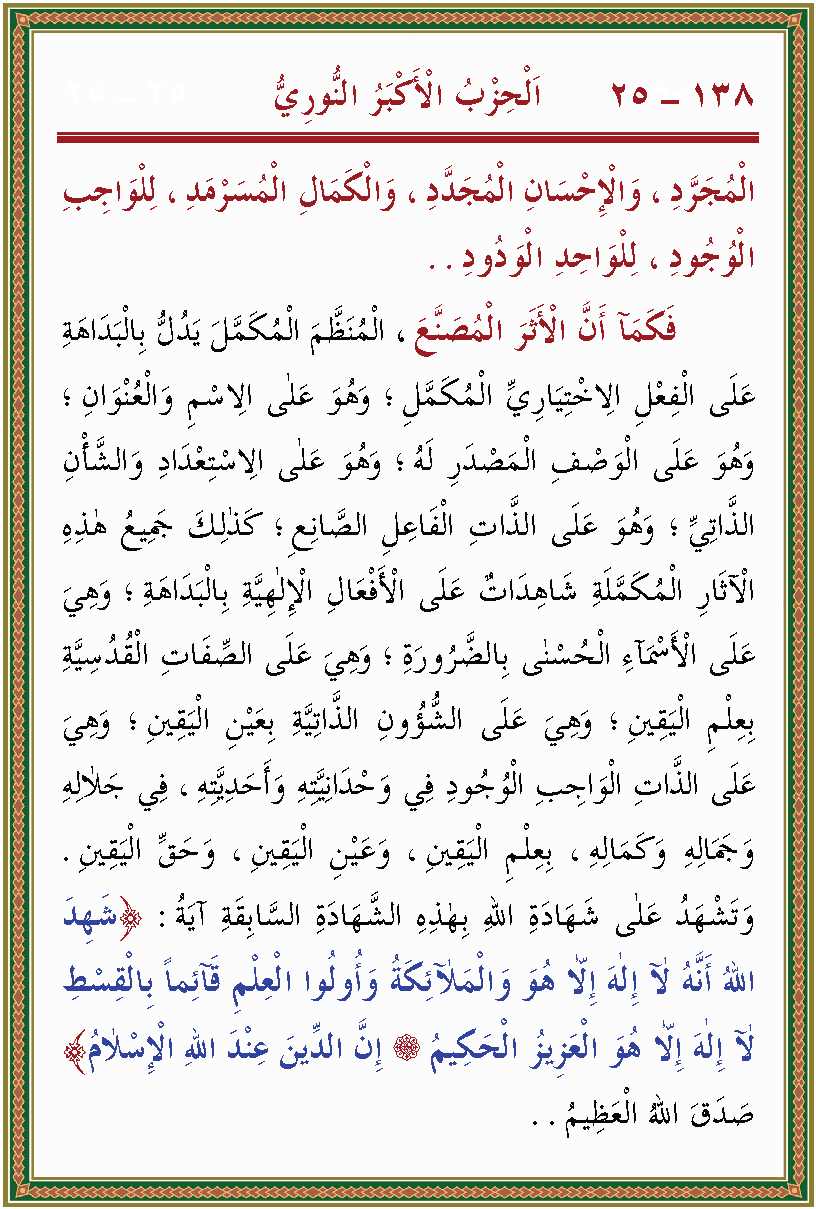 ١٣٨ ـ ٢٥ اَلْحِزْبُ الْأَكْبَرُ النُّورِيُّ ٢٥ ـ ٢٥
الْمُجَرَّدِ ، وَالْإِحْسَانِ الْمُجَدَّدِ ، وَالْكَمَالِ الْمُسَرْمَدِ ، لِلْوَاجِبِ
الْوُجُودِ ، لِلْوَاحِدِ الْوَدُودِ . .
فَكَمَآ أَنَّ الْأَثَرَ الْمُصَنَّعَ ، الْمُنَظَّمَ الْمُكَمَّلَ يَدُلُّ بِالْبَدَاهَةِ
عَلَى الْفِعْلِ الِاخْتِيَارِيِّ لِمُكَمَّلِ ؛ وَهُوَ عَلٰى الِاسْمِ وَالْعُنْوَانِ ؛
وَهُوَ عَلَى الْوَصْفِ الْمَصْدَرِ لَهُ ؛ وَهُوَ عَلٰى الِاسْتِعْدَادِ وَالشَّأْنِ
الذَّاتِيِّ ؛ وَهُوَ عَلَى الذَّاتِ الْفَاعِلِ الصَّانِعِ ؛ كَذٰلِكَ جَمِيعُ هٰذِهِ
الْآثَارِ الْمُكَمَّلَةِ شَاهِدَاتٌ عَلَى الْأَفْعَالِ الْإِلٰهِيَّةِ بِالْبَدَاهَةِ ؛ وَهِيَ
عَلَى الْأَسْمَآءِ الْحُسْنٰى بِالضَّرُورَةِ ؛ وَهِيَ عَلَى الصِّفَاتِ الْقُدْسِيَّةِ
بِعِلْمِ الْيَقِينِ ؛ وَهِيَ عَلَى الشُّؤُونِ الذَّاتِيَّةِ بِعَيْنِ الْيَقِينِ ؛ وَهِيَ
عَلَى الذَّاتِ الْوَاجِبِ الْوُجُودِ فِي وَحْدَانِيَّتِهِ وَأَحَدِيَّتِهِ ، فِي جَلَالِهِ
وَجَمَالِهِ وَكَمَالِهِ ، بِعِلْمِ الْيَقِينِ ، وَعَيْنِ الْيَقِينِ ، وَحَقِّ الْيَقِينِ .
وَتَشْهَدُ عَلٰى شَهَادَةِ اللهِ بِهٰذِهِ الشَّهَادَةِ السَّابِقَةِ آيَةُ : ﴿شَهِدَ
اللهُ أَنَّهُ لَآ إِلٰهَ إِلَّا هُوَ وَالْمَلَآئِكَةُ وَأُولُوا الْعِلْمِ قَآئِماً بِالْقِسْطِ
لَآ إِلٰهَ إِلَّا هُوَ الْعَزِيزُ الْحَكِيمُ ۞ إِنَّ الدِّينَ عِنْدَ اللهِ الْإِسْلَامُ﴾
صَدَقَ اللهُ الْعَظِيمُ . .